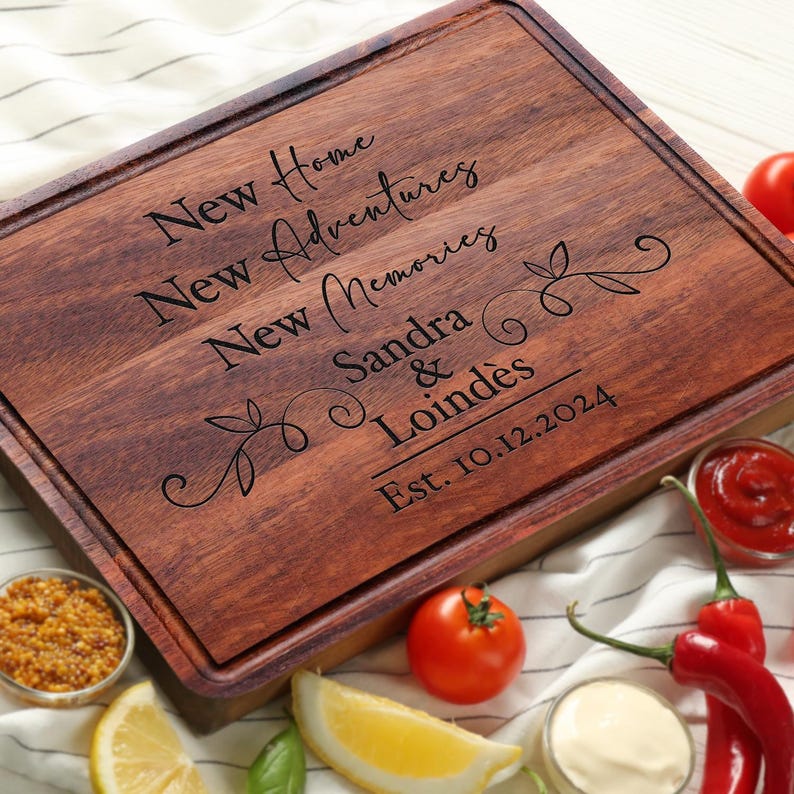 New Home
New Adventures
New Memories
Sandra
&
Loindès
Est. 10.12.2024